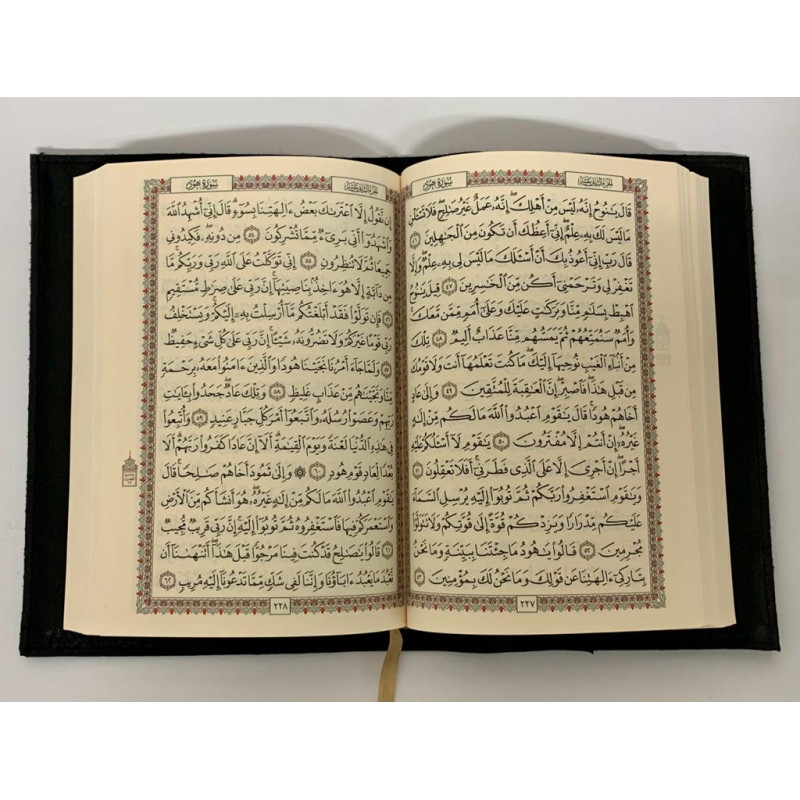 الجزء الثاني عشر
سورة هود
قَالَ يَٰنُوحُ إِنَّهُۥ لَيْسَ مِنْ أَهْلِكَۖ إِنَّهُۥ عَمَلٌ غَيْرُ صَٰلِحٖۖ فَلَا تَسْـَٔلْنِ
مَا لَيْسَ لَكَ بِهِۦ عِلْمٌۖ إِنِّيٓ أَعِظُكَ أَن تَكُونَ مِنَ ٱلْجَٰهِلِينَ ٤٦
قَالَ رَبِّ إِنِّيٓ أَعُوذُ بِكَ أَنْ أَسْـَٔلَكَ مَا لَيْسَ لِي بِهِۦ عِلْمٌۖ وَإِلَّا
تَغْفِرْ لِي وَتَرْحَمْنِيٓ أَكُن مِّنَ ٱلْخَٰسِرِينَ ٤٧ قِيلَ يَٰنُوحُ
ٱهْبِطْ بِسَلَٰمٖ مِّنَّا وَبَرَكَٰتٍ عَلَيْكَ وَعَلَىٰٓ أُمَمٖ مِّمَّن مَّعَكَۚ
وَأُمَمٌ سَنُمَتِّعُهُمْ ثُمَّ يَمَسُّهُم مِّنَّا عَذَابٌ أَلِيمٌ ٤٨ تِلْكَ
مِنْ أَنۢبَآءِ ٱلْغَيْبِ نُوحِيهَآ إِلَيْكَۖ مَا كُنتَ تَعْلَمُهَآ أَنتَ وَلَا قَوْمُكَ
مِن قَبْلِ هَٰذَاۖ فَٱصْبِرْۖ إِنَّ ٱلْعَٰقِبَةَ لِلْمُتَّقِينَ ٤٩ وَإِلَىٰ عَادٍ
أَخَاهُمْ هُودٗاۚ قَالَ يَٰقَوْمِ ٱعْبُدُوا۟ ٱللَّهَ مَا لَكُم مِّنْ إِلَٰهٍ
غَيْرُهُۥٓۖ إِنْ أَنتُمْ إِلَّا مُفْتَرُونَ ٥٠ يَٰقَوْمِ لَآ أَسْـَٔلُكُمْ عَلَيْهِ
أَجْرًاۖ إِنْ أَجْرِيَ إِلَّا عَلَى ٱلَّذِي فَطَرَنِيٓۚ أَفَلَا تَعْقِلُونَ ٥١
وَيَٰقَوْمِ ٱسْتَغْفِرُوا۟ رَبَّكُمْ ثُمَّ تُوبُوٓا۟ إِلَيْهِ يُرْسِلِ ٱلسَّمَآءَ
عَلَيْكُم مِّدْرَارٗا وَيَزِدْكُمْ قُوَّةً إِلَىٰ قُوَّتِكُمْ وَلَا تَتَوَلَّوْا۟
مُجْرِمِينَ ٥٢ قَالُوا۟ يَٰهُودُ مَا جِئْتَنَا بِبَيِّنَةٖ وَمَا نَحْنُ
بِتَارِكِيٓ ءَالِهَتِنَا عَن قَوْلِكَ وَمَا نَحْنُ لَكَ بِمُؤْمِنِينَ ٥٣
٢٢٧
الجزء الثاني عشر
سورة هود
إِن نَّقُولُ إِلَّا ٱعْتَرَىٰكَ بَعْضُ ءَالِهَتِنَا بِسُوٓءٖۗ قَالَ إِنِّيٓ أُشْهِدُ ٱللَّهَ
وَٱشْهَدُوٓا۟ أَنِّي بَرِيٓءٌ مِّمَّا تُشْرِكُونَ ٥٤ مِن دُونِهِۦۖ فَكِيدُونِي
جَمِيعٗا ثُمَّ لَا تُنظِرُونِ ٥٥ إِنِّي تَوَكَّلْتُ عَلَى ٱللَّهِ رَبِّي وَرَبِّكُمۚ مَّا
مِن دَآبَّةٍ إِلَّا هُوَ ءَاخِذٌۢ بِنَاصِيَتِهَآۚ إِنَّ رَبِّي عَلَىٰ صِرَٰطٖ مُّسْتَقِيمٖ
٥٦ فَإِن تَوَلَّوْا۟ فَقَدْ أَبْلَغْتُكُم مَّآ أُرْسِلْتُ بِهِۦٓ إِلَيْكُمْۚ وَيَسْتَخْلِفُ
رَبِّي قَوْمًا غَيْرَكُمْ وَلَا تَضُرُّونَهُۥ شَيْـًٔاۚ إِنَّ رَبِّي عَلَىٰ كُلِّ شَيْءٍ حَفِيظٌ
٥٧ وَلَمَّا جَآءَ أَمْرُنَا نَجَّيْنَا هُودٗا وَٱلَّذِينَ ءَامَنُوا۟ مَعَهُۥ بِرَحْمَةٖ
مِّنَّا وَنَجَّيْنَٰهُم مِّنْ عَذَابٍ غَلِيظٖ ٥٨ وَتِلْكَ عَادٌۖ جَحَدُوا۟ بِـَٔايَٰتِ
رَبِّهِمْ وَعَصَوْا۟ رُسُلَهُۥ وَٱتَّبَعُوٓا۟ أَمْرَ كُلِّ جَبَّارٍ عَنِيدٖ ٥٩ وَأُتْبِعُوا۟
فِي هَٰذِهِ ٱلدُّنْيَا لَعْنَةٗ وَيَوْمَ ٱلْقِيَٰمَةِۗ أَلَآ إِنَّ عَادٗا كَفَرُوا۟ رَبَّهُمْۗ أَلَا
بُعْدٗا لِّعَادٖ قَوْمِ هُودٖ ٦٠ ۞ وَإِلَىٰ ثَمُودَ أَخَاهُمْ صَٰلِحٗاۚ قَالَ
يَٰقَوْمِ ٱعْبُدُوا۟ ٱللَّهَ مَا لَكُم مِّنْ إِلَٰهٍ غَيْرُهُۥۖ هُوَ أَنشَأَكُم مِّنَ ٱلْأَرْضِ
وَٱسْتَعْمَرَكُمْ فِيهَا فَٱسْتَغْفِرُوهُ ثُمَّ تُوبُوٓا۟ إِلَيْهِۚ إِنَّ رَبِّي قَرِيبٌ مُّجِيبٌ
٦١ قَالُوا۟ يَٰصَٰلِحُ قَدْ كُنتَ فِينَا مَرْجُوّٗا قَبْلَ هَٰذَآۖ أَتَنْهَىٰنَآ أَن
نَّعْبُدَ مَا يَعْبُدُ ءَابَآؤُنَا وَإِنَّنَا لَفِي شَكّٖ مِّمَّا تَدْعُونَآ إِلَيْهِ مُرِيبٖ ٦٢
٢٢٨